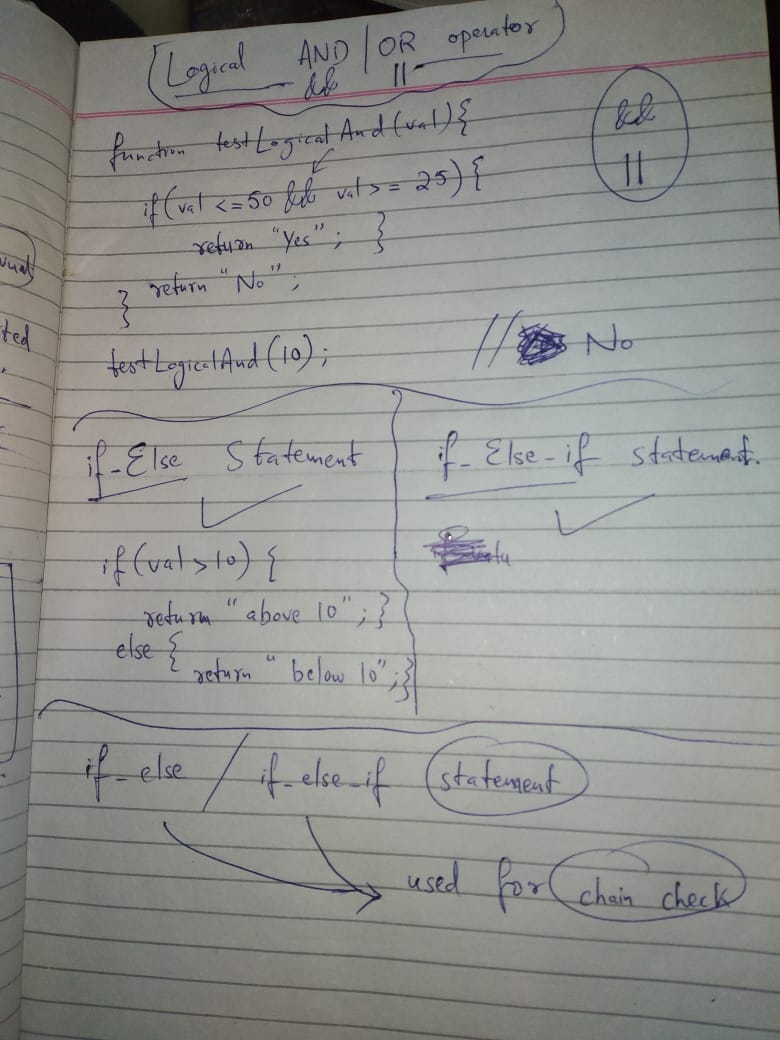 Logical AND / OR operator
&& ||
function testLogicalAnd(val){
if(val <=50 && val >= 25) {
return "Yes"; }
return "No";
}
testLogicalAnd(10); // No
&&
||
if-Else Statement
if(val>10) {
return "above 10"; }
else {
return "below 10"; }
if-Else-if statement.
if-else / if-else-if statement
used for chain check
ted